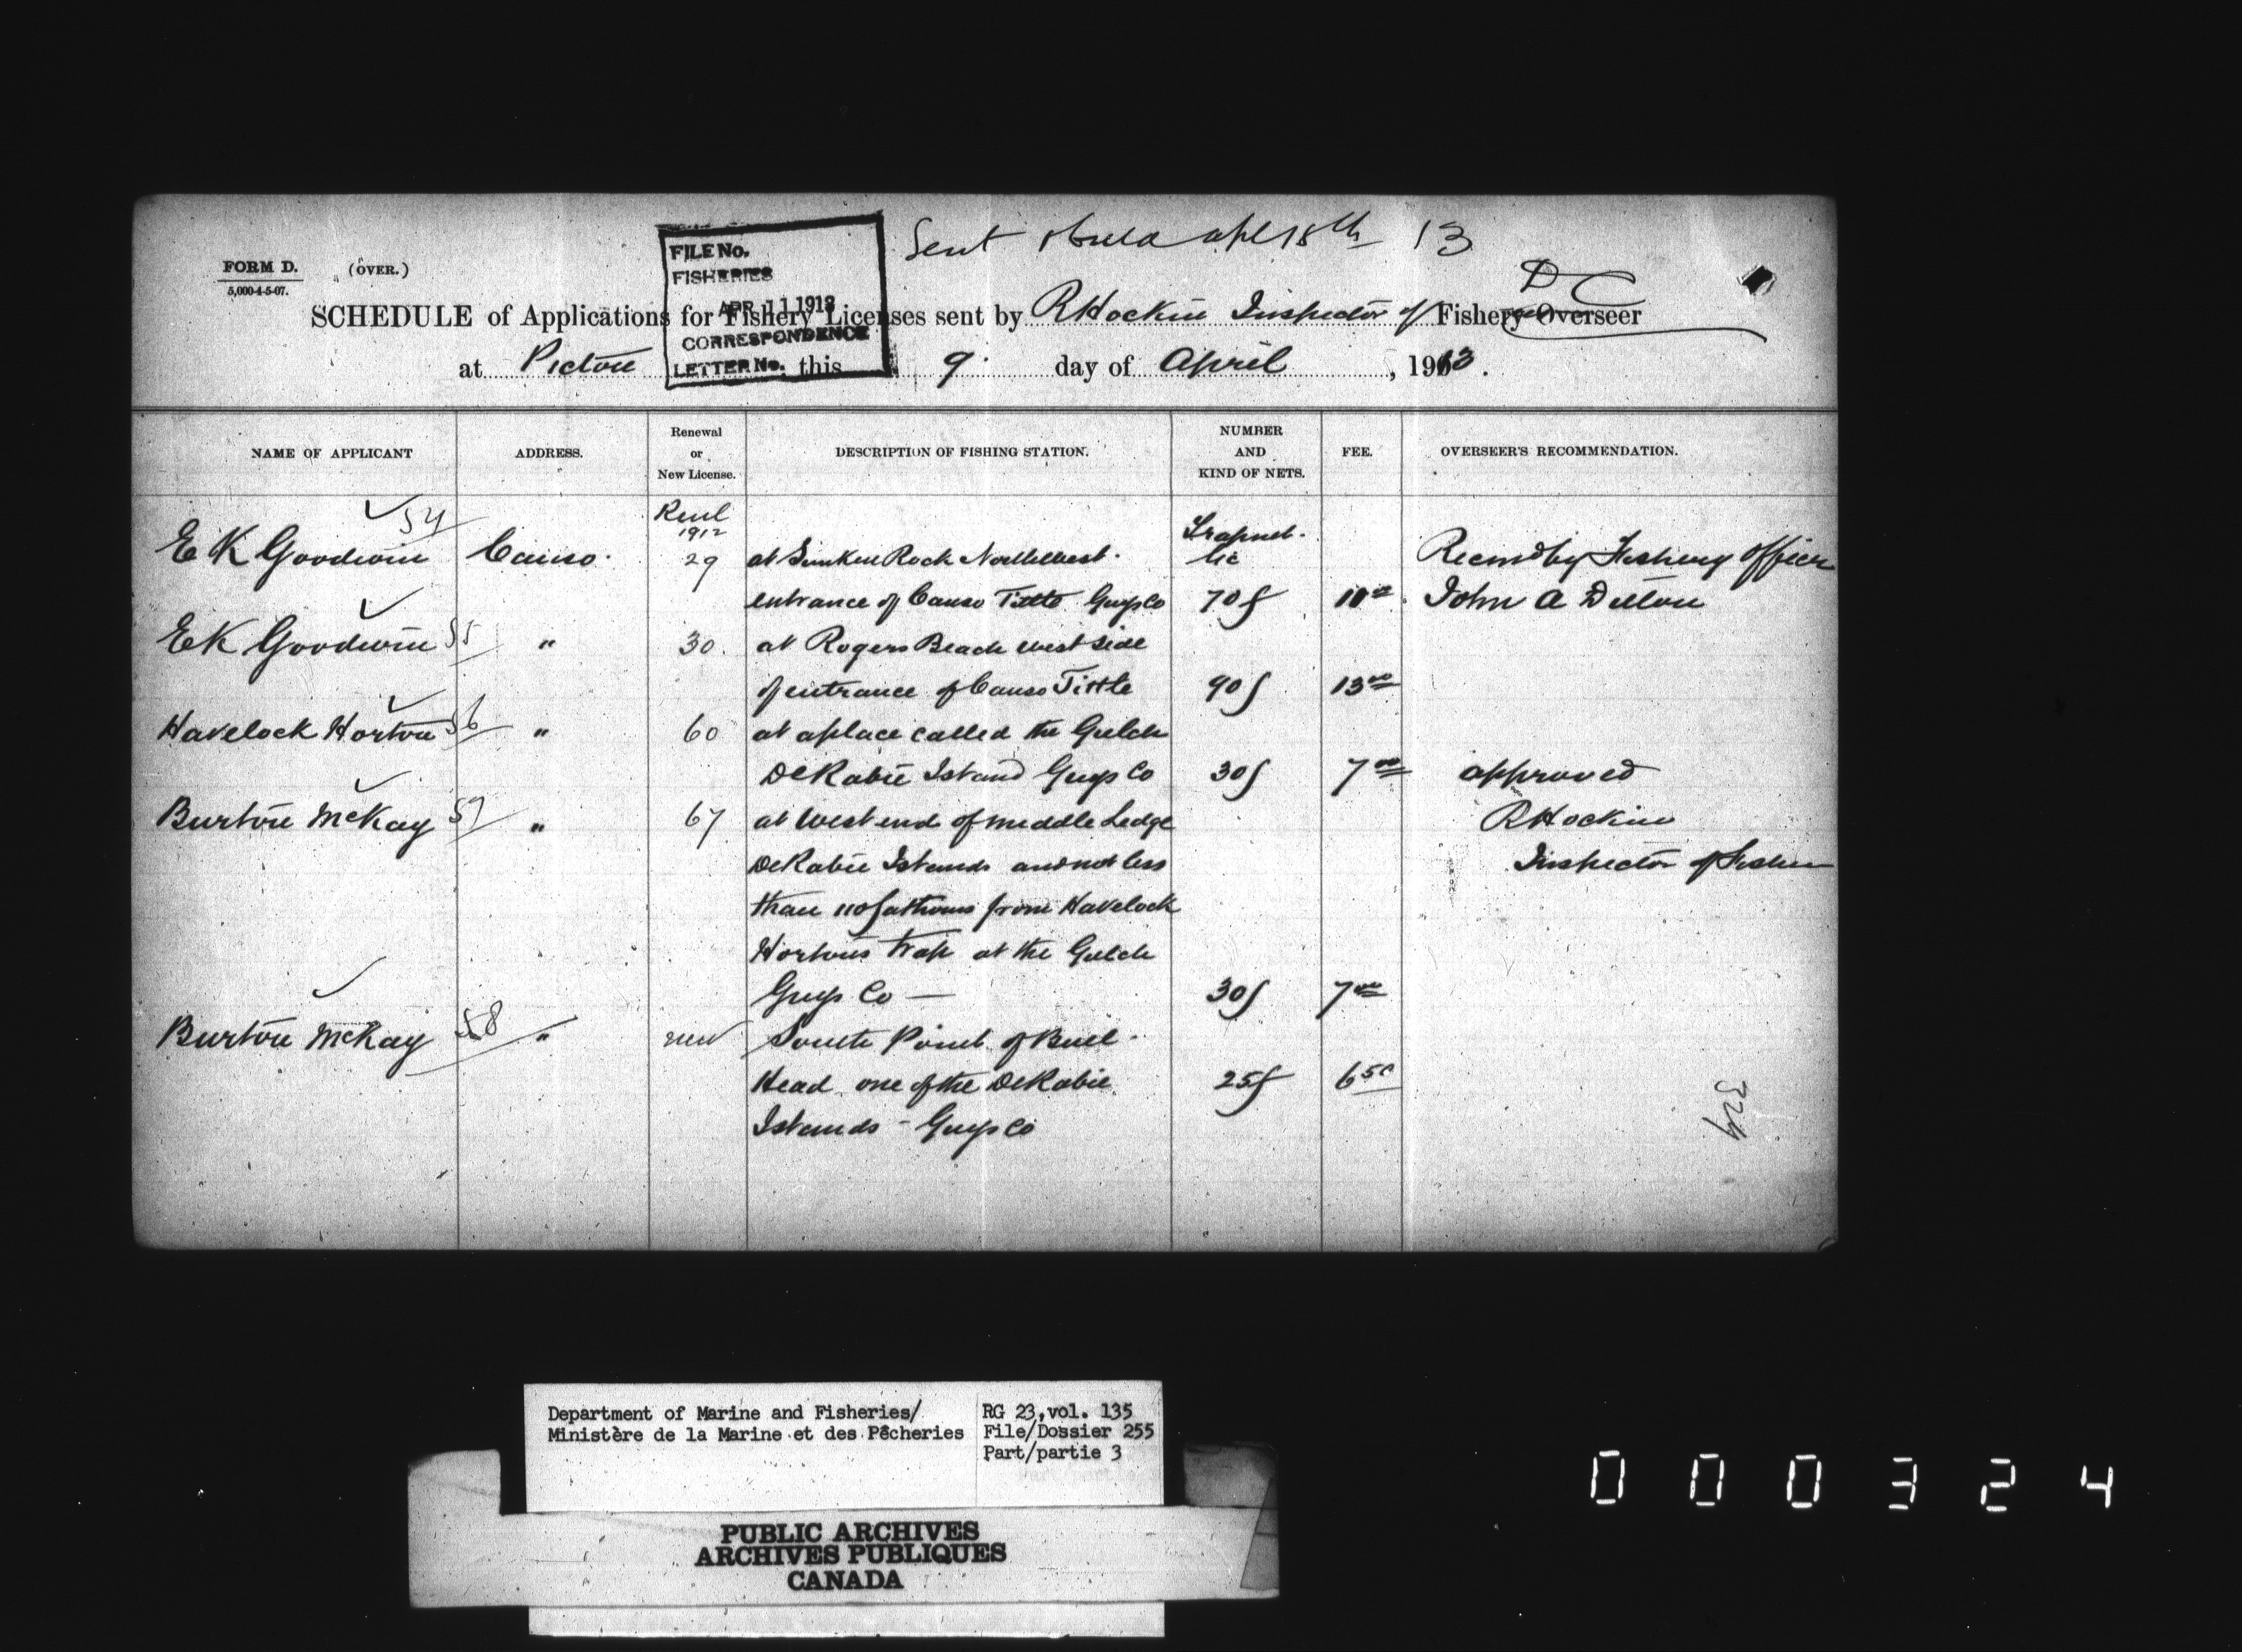 Sent apl 18th 13
FORM D. (OVER.)
5,000-4-5-07.
FILE No.
FISHERIES
APR 11 1913
CORRESPONDENCE
LETTER No.
D C
SCHEDULE of Applications for Fishery Licenses sent by R Hockin Inspector of Fishery Overseer
at Pictou this 9 day of April, 1913.
NAME OF APPLICANT ADDRESS. Renewal or New License. DESCRIPTION OF FISHING STATION. NUMBER AND KIND OF NETS. FEE. OVERSEER'S RECOMMENDATION.
54 Renl 1912 Trapnet
E K Goodwin Canso 29 at Sunken Rock Northwest lic Recmd by Fishery Officer
entrance of Canso Tittle Guys Co 70 f 11 00 John A Dillon
E K Goodwin 55 " 30 at Rogers Beach west side
of entrance of Canso Tittle 90 f 13 00
Havelock Horton 56 " 60 at a place called the Gulch
DeRabie Island Guys Co 30 f 7 00 approved
Burton McKay 57 " 67 at West end of middle Ledge R Hockin
DeRabie Islands and not less Inspector of Fisher
than 110 fathoms from Havelock
Hortons trap at the Gulch
Guys Co — 30 f 7 00
Burton McKay 58 " new South Point of Bull
Head one of the DeRabie 25 f 6 50
Islands - Guys Co
324
Department of Marine and Fisheries/ RG 23, vol. 135
Ministère de la Marine et des Pêcheries File/Dossier 255
Part/partie 3
PUBLIC ARCHIVES
ARCHIVES PUBLIQUES
CANADA
000324